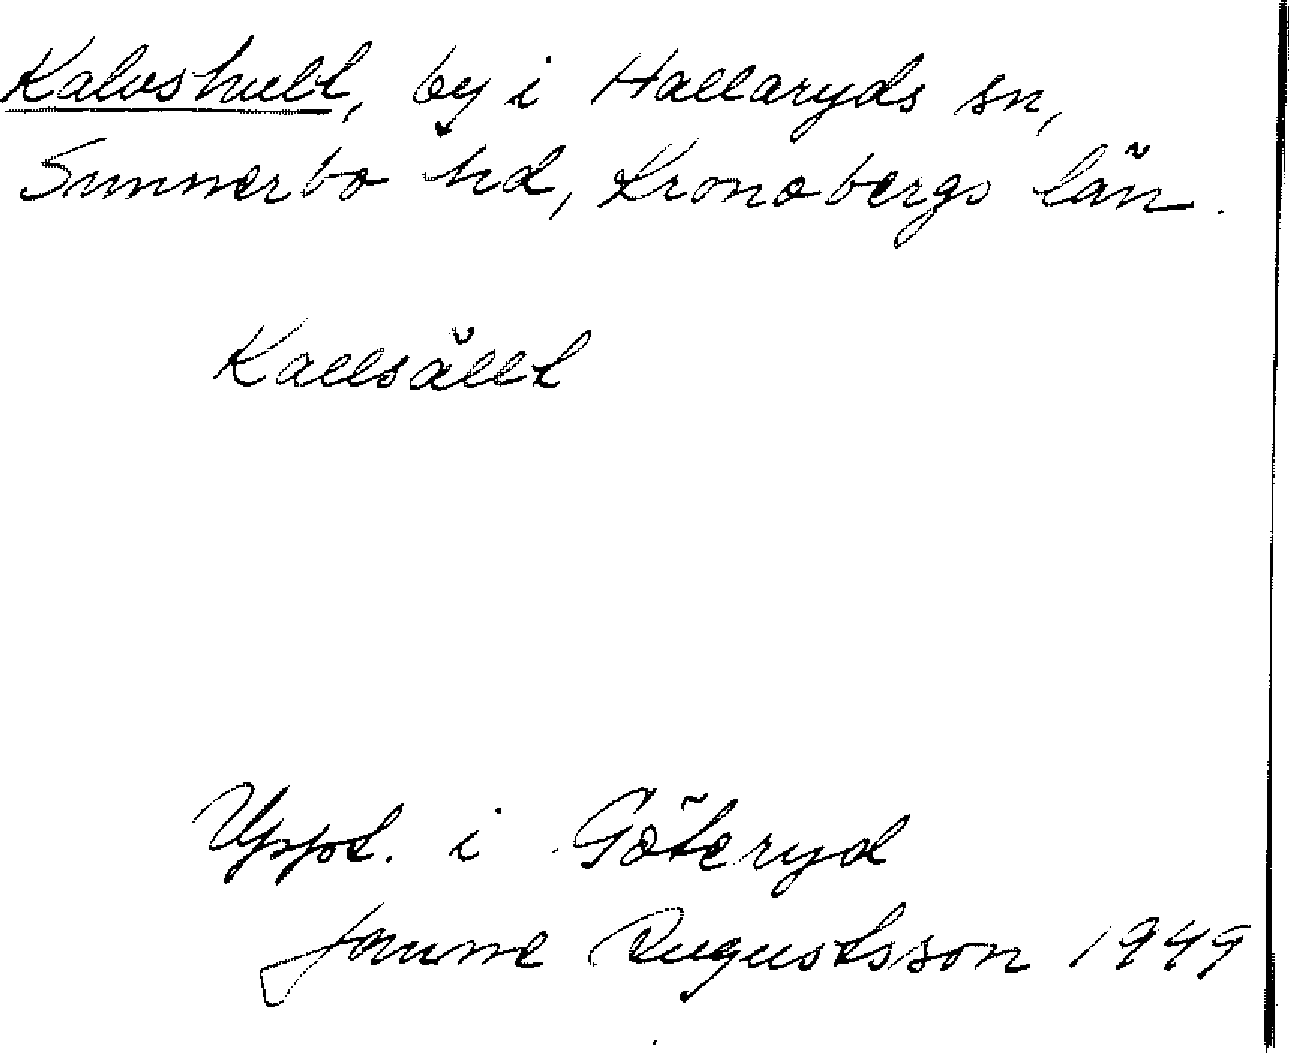 Kalvshult, by i Hallaryds sn,
Sunnerbo hd, Kronobergs län.
Kallsällt
Uppt. i Göteryd
Janne Augustsson 1949